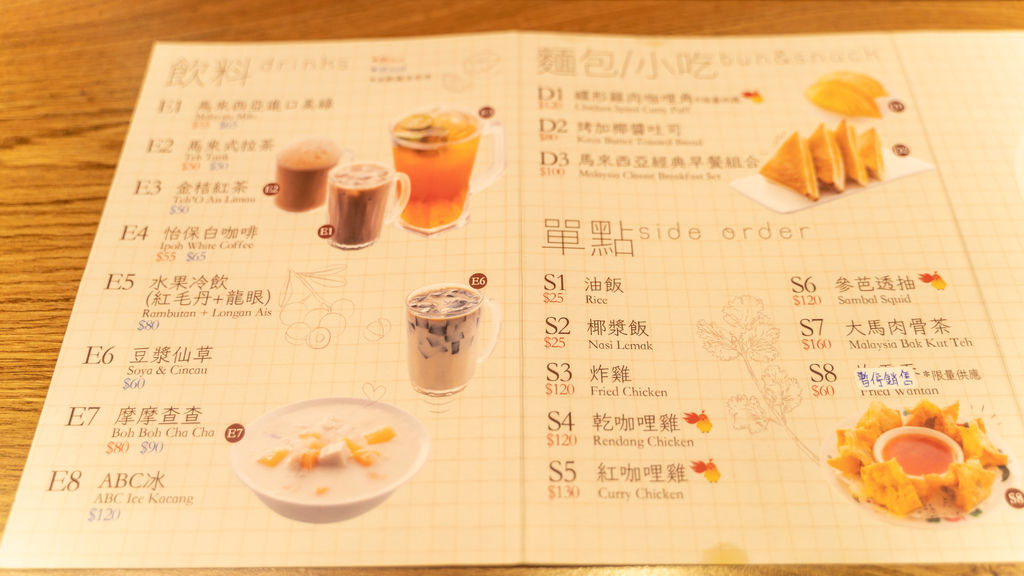 飲料 drinks
E1 馬來西亞進口美祿
Malaysia Milo
$55 $65
E2 馬來式拉茶
Teh Tarik
$50 $50
E3 金桔紅茶
Teh'O Ais Limau
$50
E4 怡保白咖啡
Ipoh White Coffee
$55 $65
E5 水果冷飲
(紅毛丹+龍眼)
Rambutan + Longan Ais
$80
E6 豆漿仙草
Soya & Cincau
$60
E7 摩摩查查
Boh Boh Cha Cha
$80 $90
E8 ABC冰
ABC Ice Kacang
$120
E3
E2
E1
E6
E7
麵包/小吃 bun&snack
D1 蝶形雞肉咖哩角
$120 Chicken Spiral Curry Puff
D2 烤加椰醬吐司
$80 Kaya Butter Toasted Bread
D3 馬來西亞經典早餐組合
$100 Malaysia Classic Breakfast Set
D1
D2
單點 side order
S1 油飯
$25 Rice
S2 椰漿飯
$25 Nasi Lemak
S3 炸雞
$120 Fried Chicken
S4 乾咖哩雞
$120 Rendang Chicken
S5 紅咖哩雞
$130 Curry Chicken
S6 參芭透抽
$120 Sambal Squid
S7 大馬肉骨茶
$160 Malaysia Bak Kut Teh
S8 暫停銷售 *限量供應
$60 Fried Wantan
S8